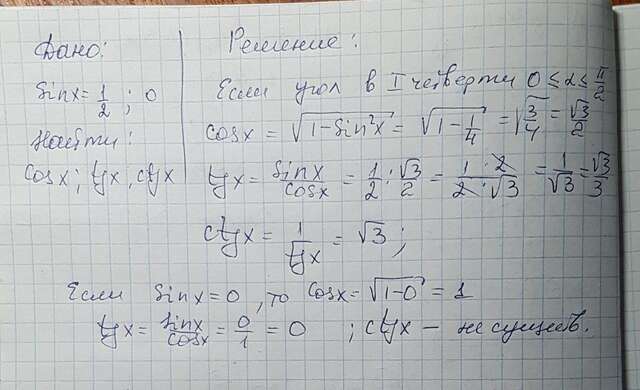 Дано:
Sinx = 1/2 ; 0
Найти:
Cosx ; tgx, ctgx
Решение:
Если угол в I четверти 0 ≤ α ≤ π/2
cosx = √(1-Sin²x) = √(1-1/4) = √(3/4) = √3/2
tgx = Sinx/cosx = 1/2 : √3/2 = (1·2)/(2·√3) = 1/√3 = √3/3
ctgx = 1/tgx = √3 ;
Если Sinx = 0, то Cosx = √(1-0) = 1
tgx = Sinx/cosx = 0/1 = 0 ; ctgx – не существ.